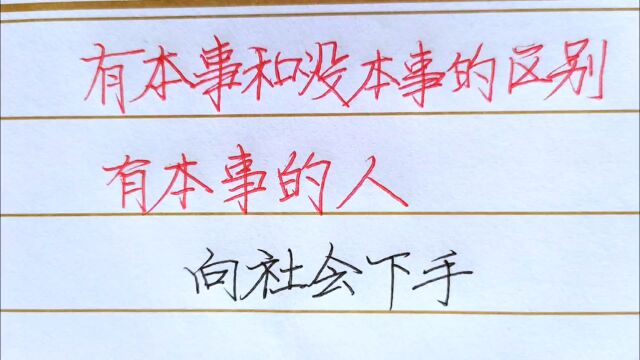 有本事和没本事的区别
有本事的人
向社会下手